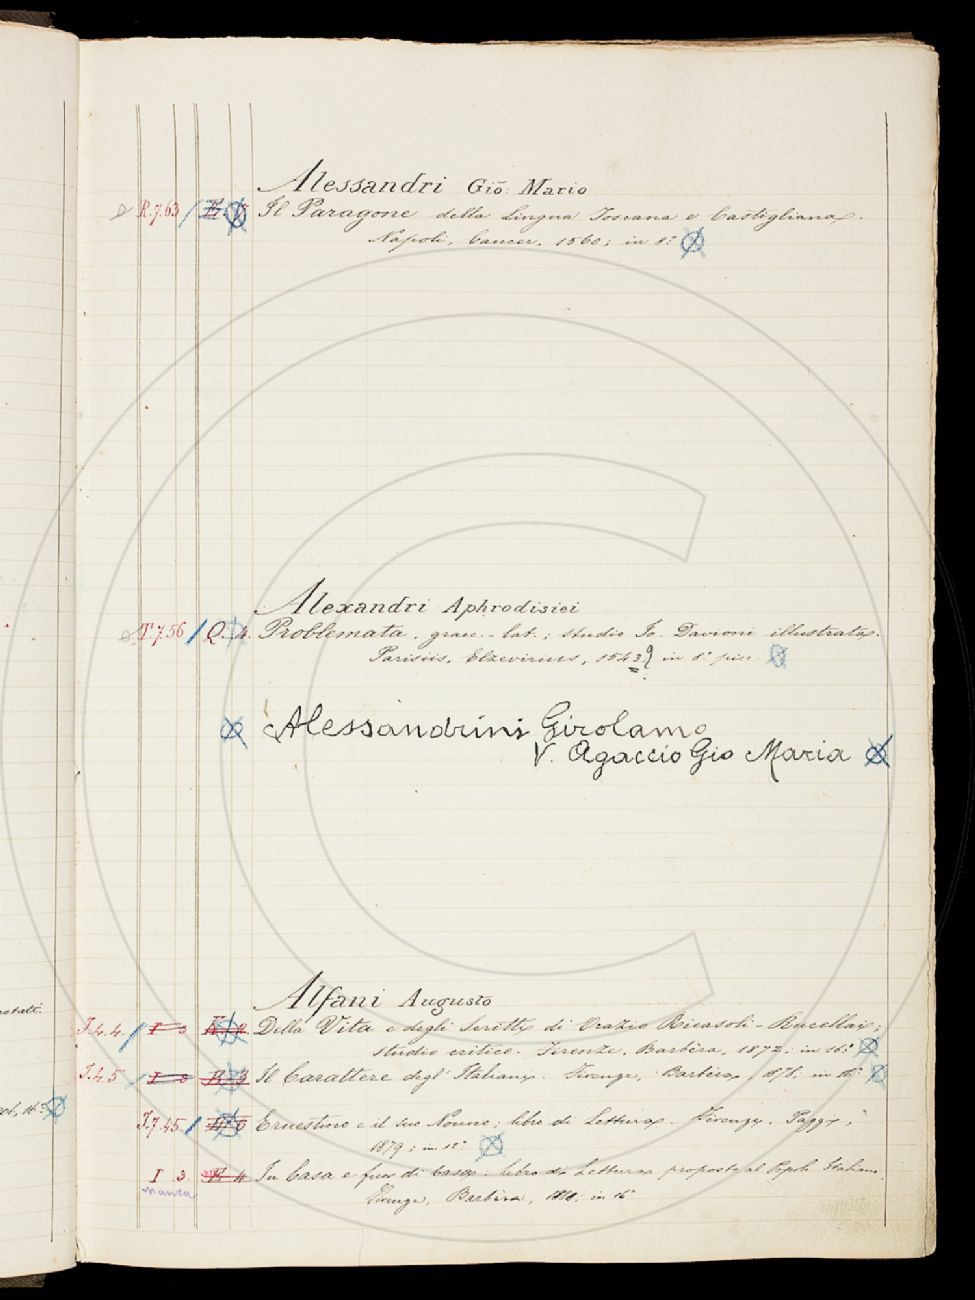 Alessandri Giō: Mario
R.7.63 Il Paragone della Lingua Toscana e Castigliana.
Napoli, Cancer, 1560; in 8.°
Alexandri Aphrodisiei
T.7.56 Q. 4. Problemata, graec.-lat.; studio Jo. Davioni illustrata.
Parisiis, Elzevirius, 1543; 9 in 8.°
Alessandrini Girolamo
V. Agaccio Gio Maria
Alfani Augusto
rotati.
J.4.4. I 3 Della Vita e degli Scritti di Orazio Ricasoli-Rucellai;
studio critico. Firenze, Barbèra, 1872; in 16.°
J.4.5 B 3 Il Carattere degl' Italiani. Firenze, Barbèra, 1878; in 16.°
16.°
J.7.45 Ernestino e il suo Nonno; libro di Lettura. Firenze, Paggi,
1879; in 12.°
I 3 In Casa e fuor di Casa. Libro di Lettura proposto al Italiano
manca
Firenze, Barbèra, in 16.°